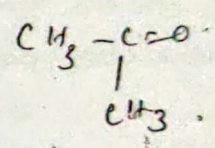 CH₃-C=O
|
CH₃.